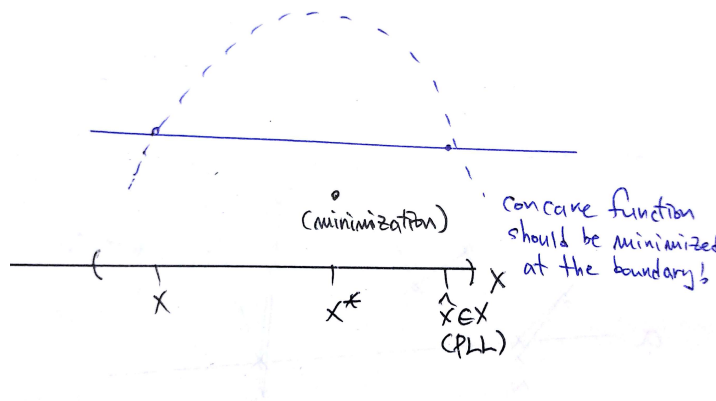 (minimization)
concave function
should be minimized
at the boundary!
X
X
X*
x̂∈X
(PLL)